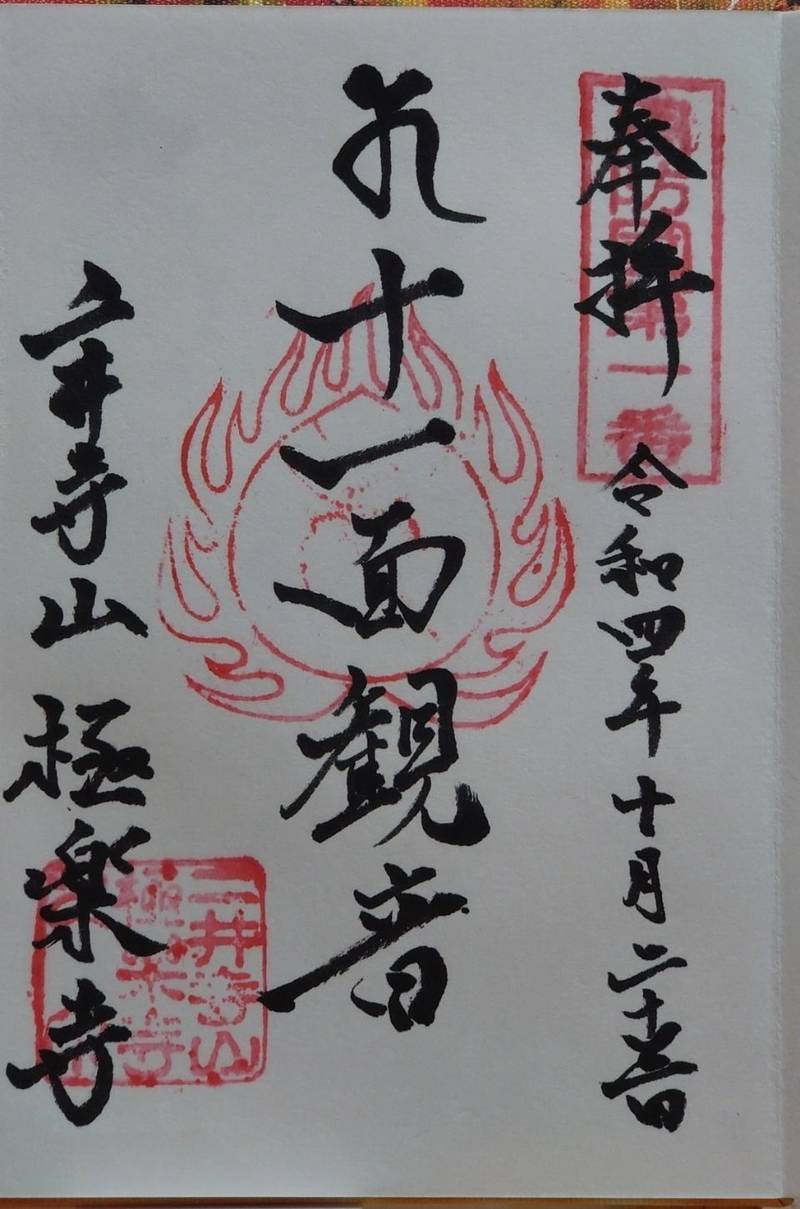 周防国第一番
奉拝 令和四年十月二十
十一面観音
二井寺山 極楽寺
二井寺山
極楽寺